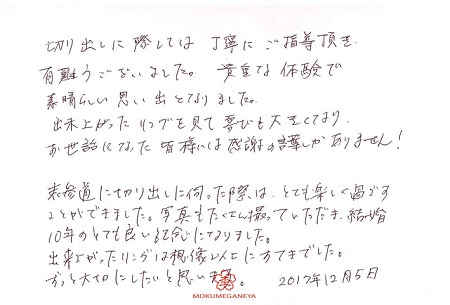 切り出しに際しては丁寧にご指導頂き
有難うございました。貴重な体験で
素晴らしい思い出となりました。
出来上がったリングを見て喜びも大きくなり、
お世話になった皆様には感謝の言葉しかありません!
表参道に切り出しに伺った際は、とても楽しく過ごす
ことができました。写真もたくさん撮っていただき、結婚
10年のとても良い記念になりました。
出来上がったリングは想像以上にすてきでした。
ずっと大切にしたいと思います。 2017年12月5日
MOKUMEGANEYA